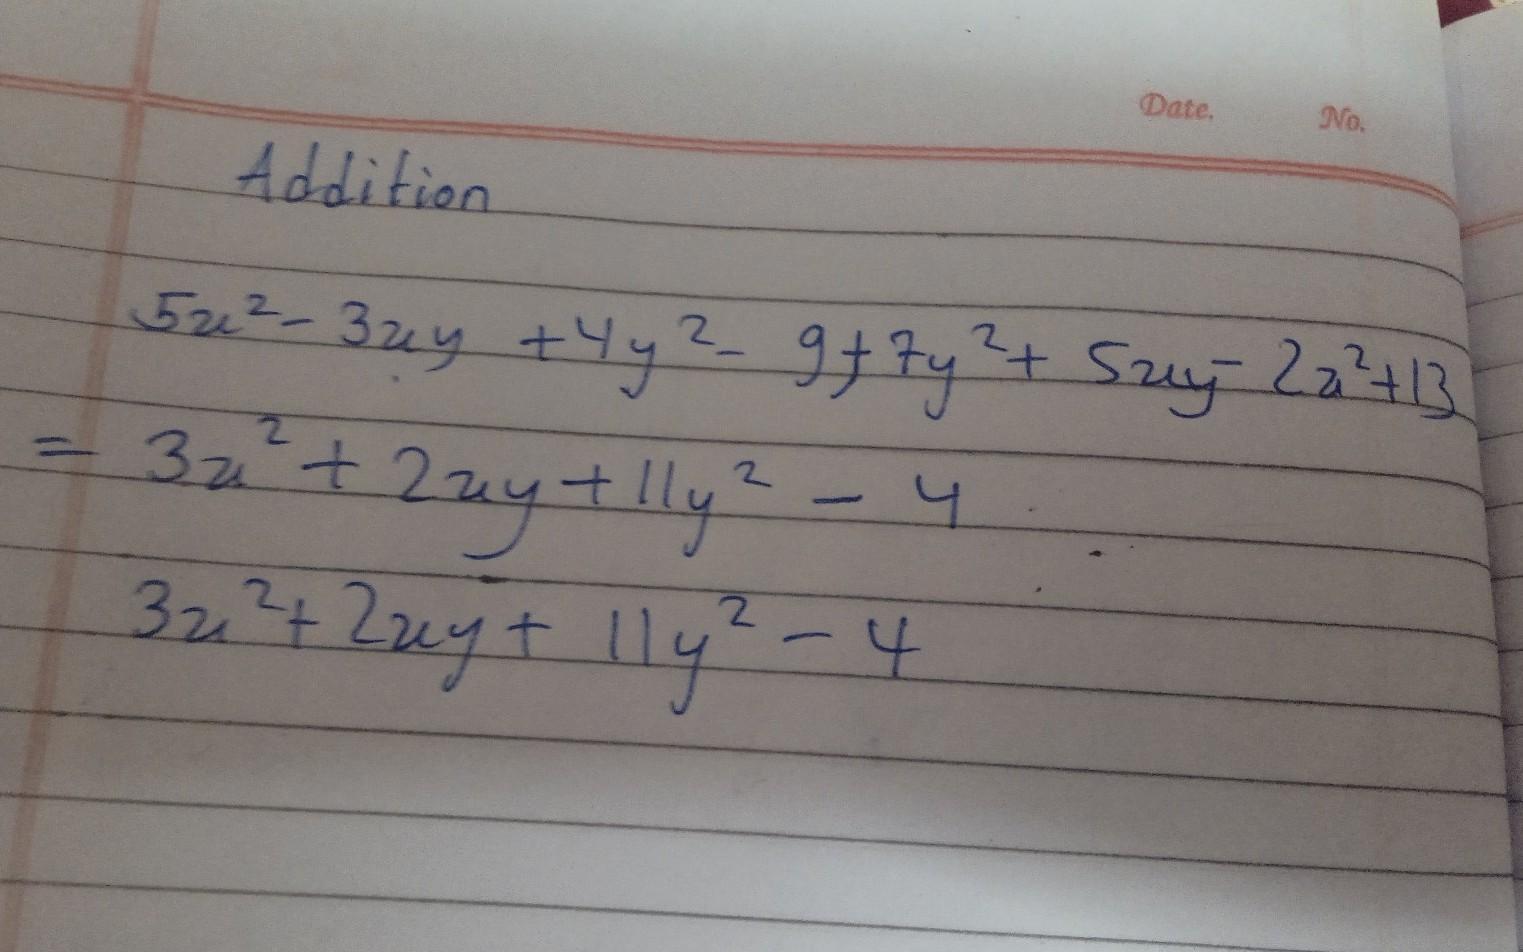 Date. No.
Addition
5x² - 3xy + 4y² - 9 + 7y² + 5xy - 2x² + 13
= 3x² + 2xy + 11y² - 4
3x² + 2xy + 11y² - 4